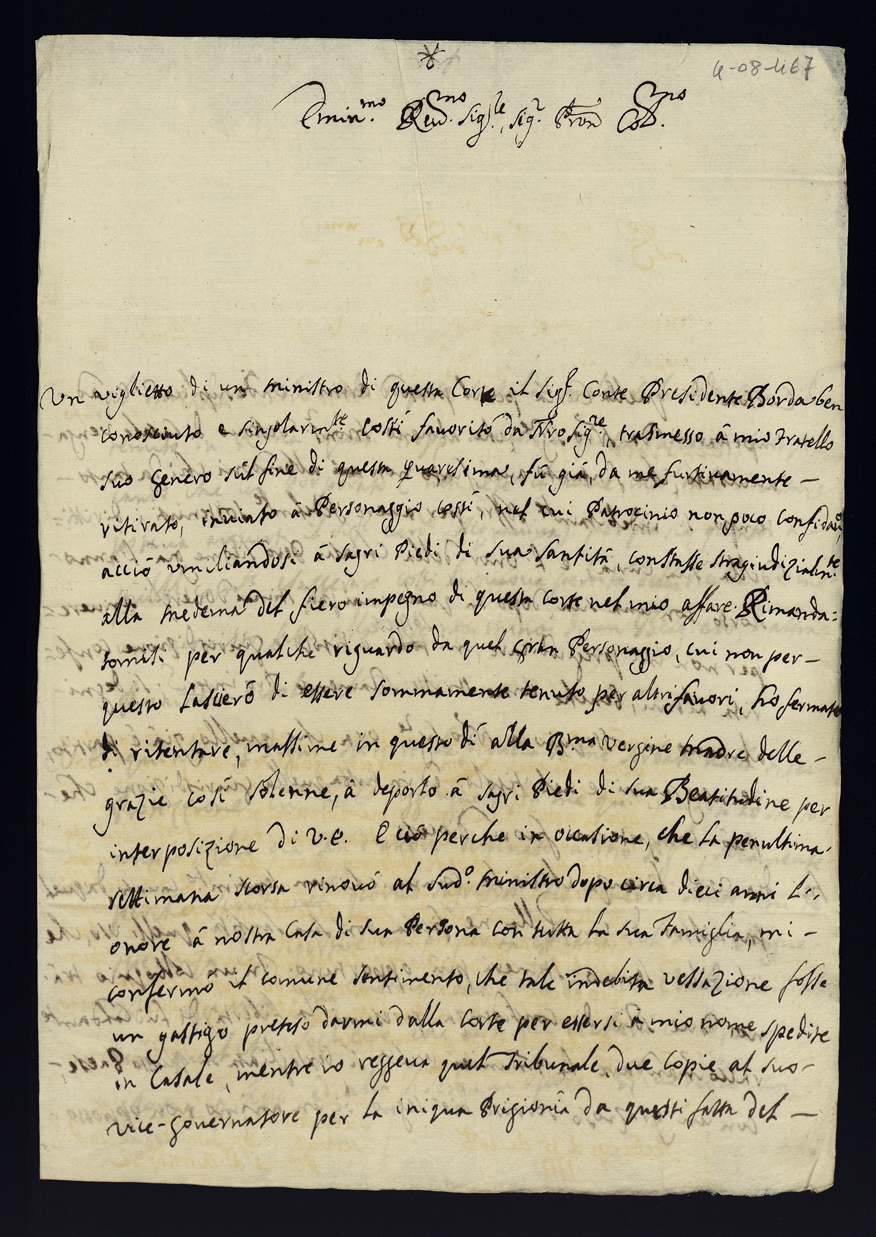 4-08-467
Emin.mo Rev.mo Sig.re, Sig.r Pron Col.mo
Un viglietto di un Ministro di questa Corte il Sig.r Conte Presidente Borda ben
conosciuto e singolarmte costì favorito da Nro Sig.re, trasmesso à mio Fratello
suo Genero sul fine di questa quaresima, fù già, da me furtivamente -
ritirato, inviato à Personaggio costì, nel cui Patrocinio non poco confidavo
acciò umiliandosi à sagri Piedi di Sua Santità, constasse stragiudizialmte
alla medema del fiero impegno di questa corte nel mio affare. Rimanda=
tomisi per qualche riguardo da quel gran Personaggio, cui non per -
questo lascierò di essere sommamente tenuto per altri favori, hò fermato
di ritentare, massime in questo dì alla Bma Vergine Madre delle -
grazie così solenne, à deporlo à sagri Piedi di sua Beatitudine per
interposizione di V.E. E ciò perche in occasione, che la penultima
settimana scorsa rinovò al sud.o Ministro dopo circa dieci anni l'
onore à nostra Casa di sua Persona con tutta la sua Famiglia, mi -
confermò il comune sentimento, che tale indebita vessazione fosse
un gastigo preteso darmi dalla Corte per essersi à mio nome spedite
in Casale, mentre io reggeva quel Tribunale, due Copie al suo -
Vice-Governatore per la iniqua Prigionia da questi fatta del -